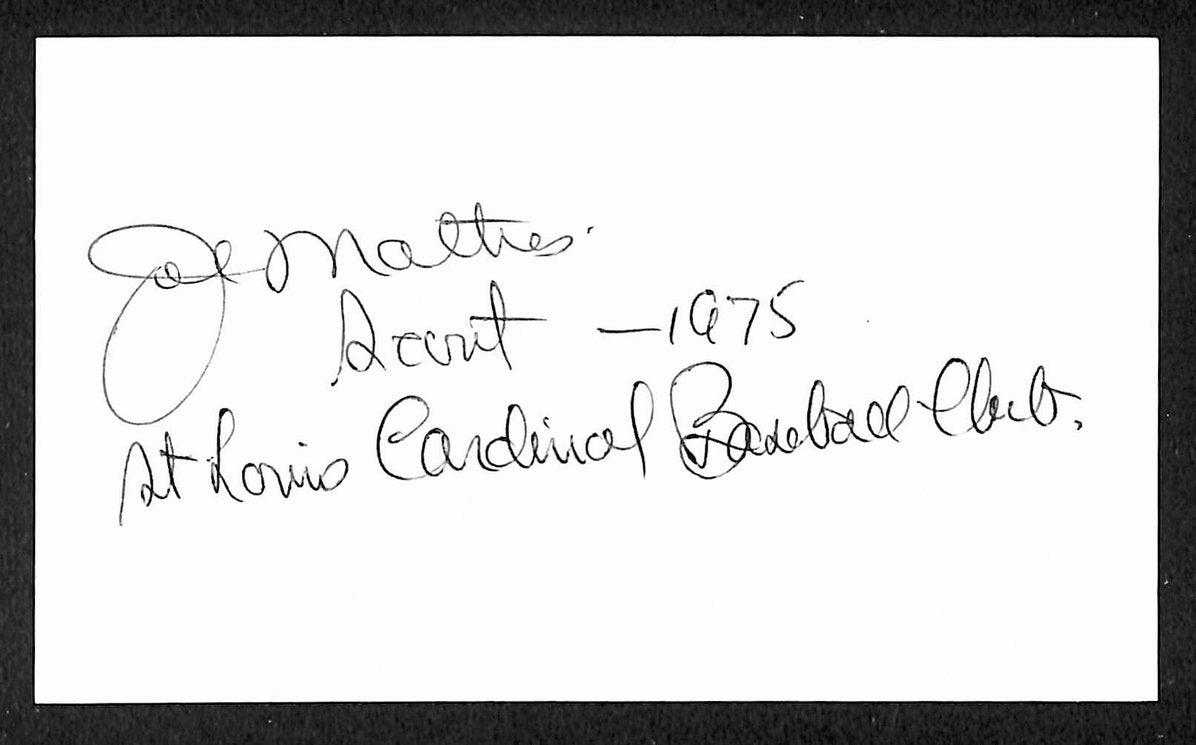 Joe Mathes.
Scout – 1975
St Louis Cardinal Baseball Club.